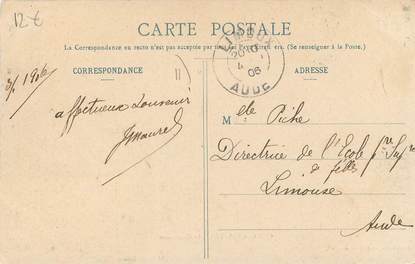 12 €
CARTE POSTALE
La Correspondance au recto n'est pas acceptée par tous
(Se renseigner à la Poste.)
CORRESPONDANCE
ADRESSE
LIMOUX
AUDE
4
06
1906
affectueux souvenir
Mlle Piche
Directrice de l'Ecole
de filles
Limouse
Aude